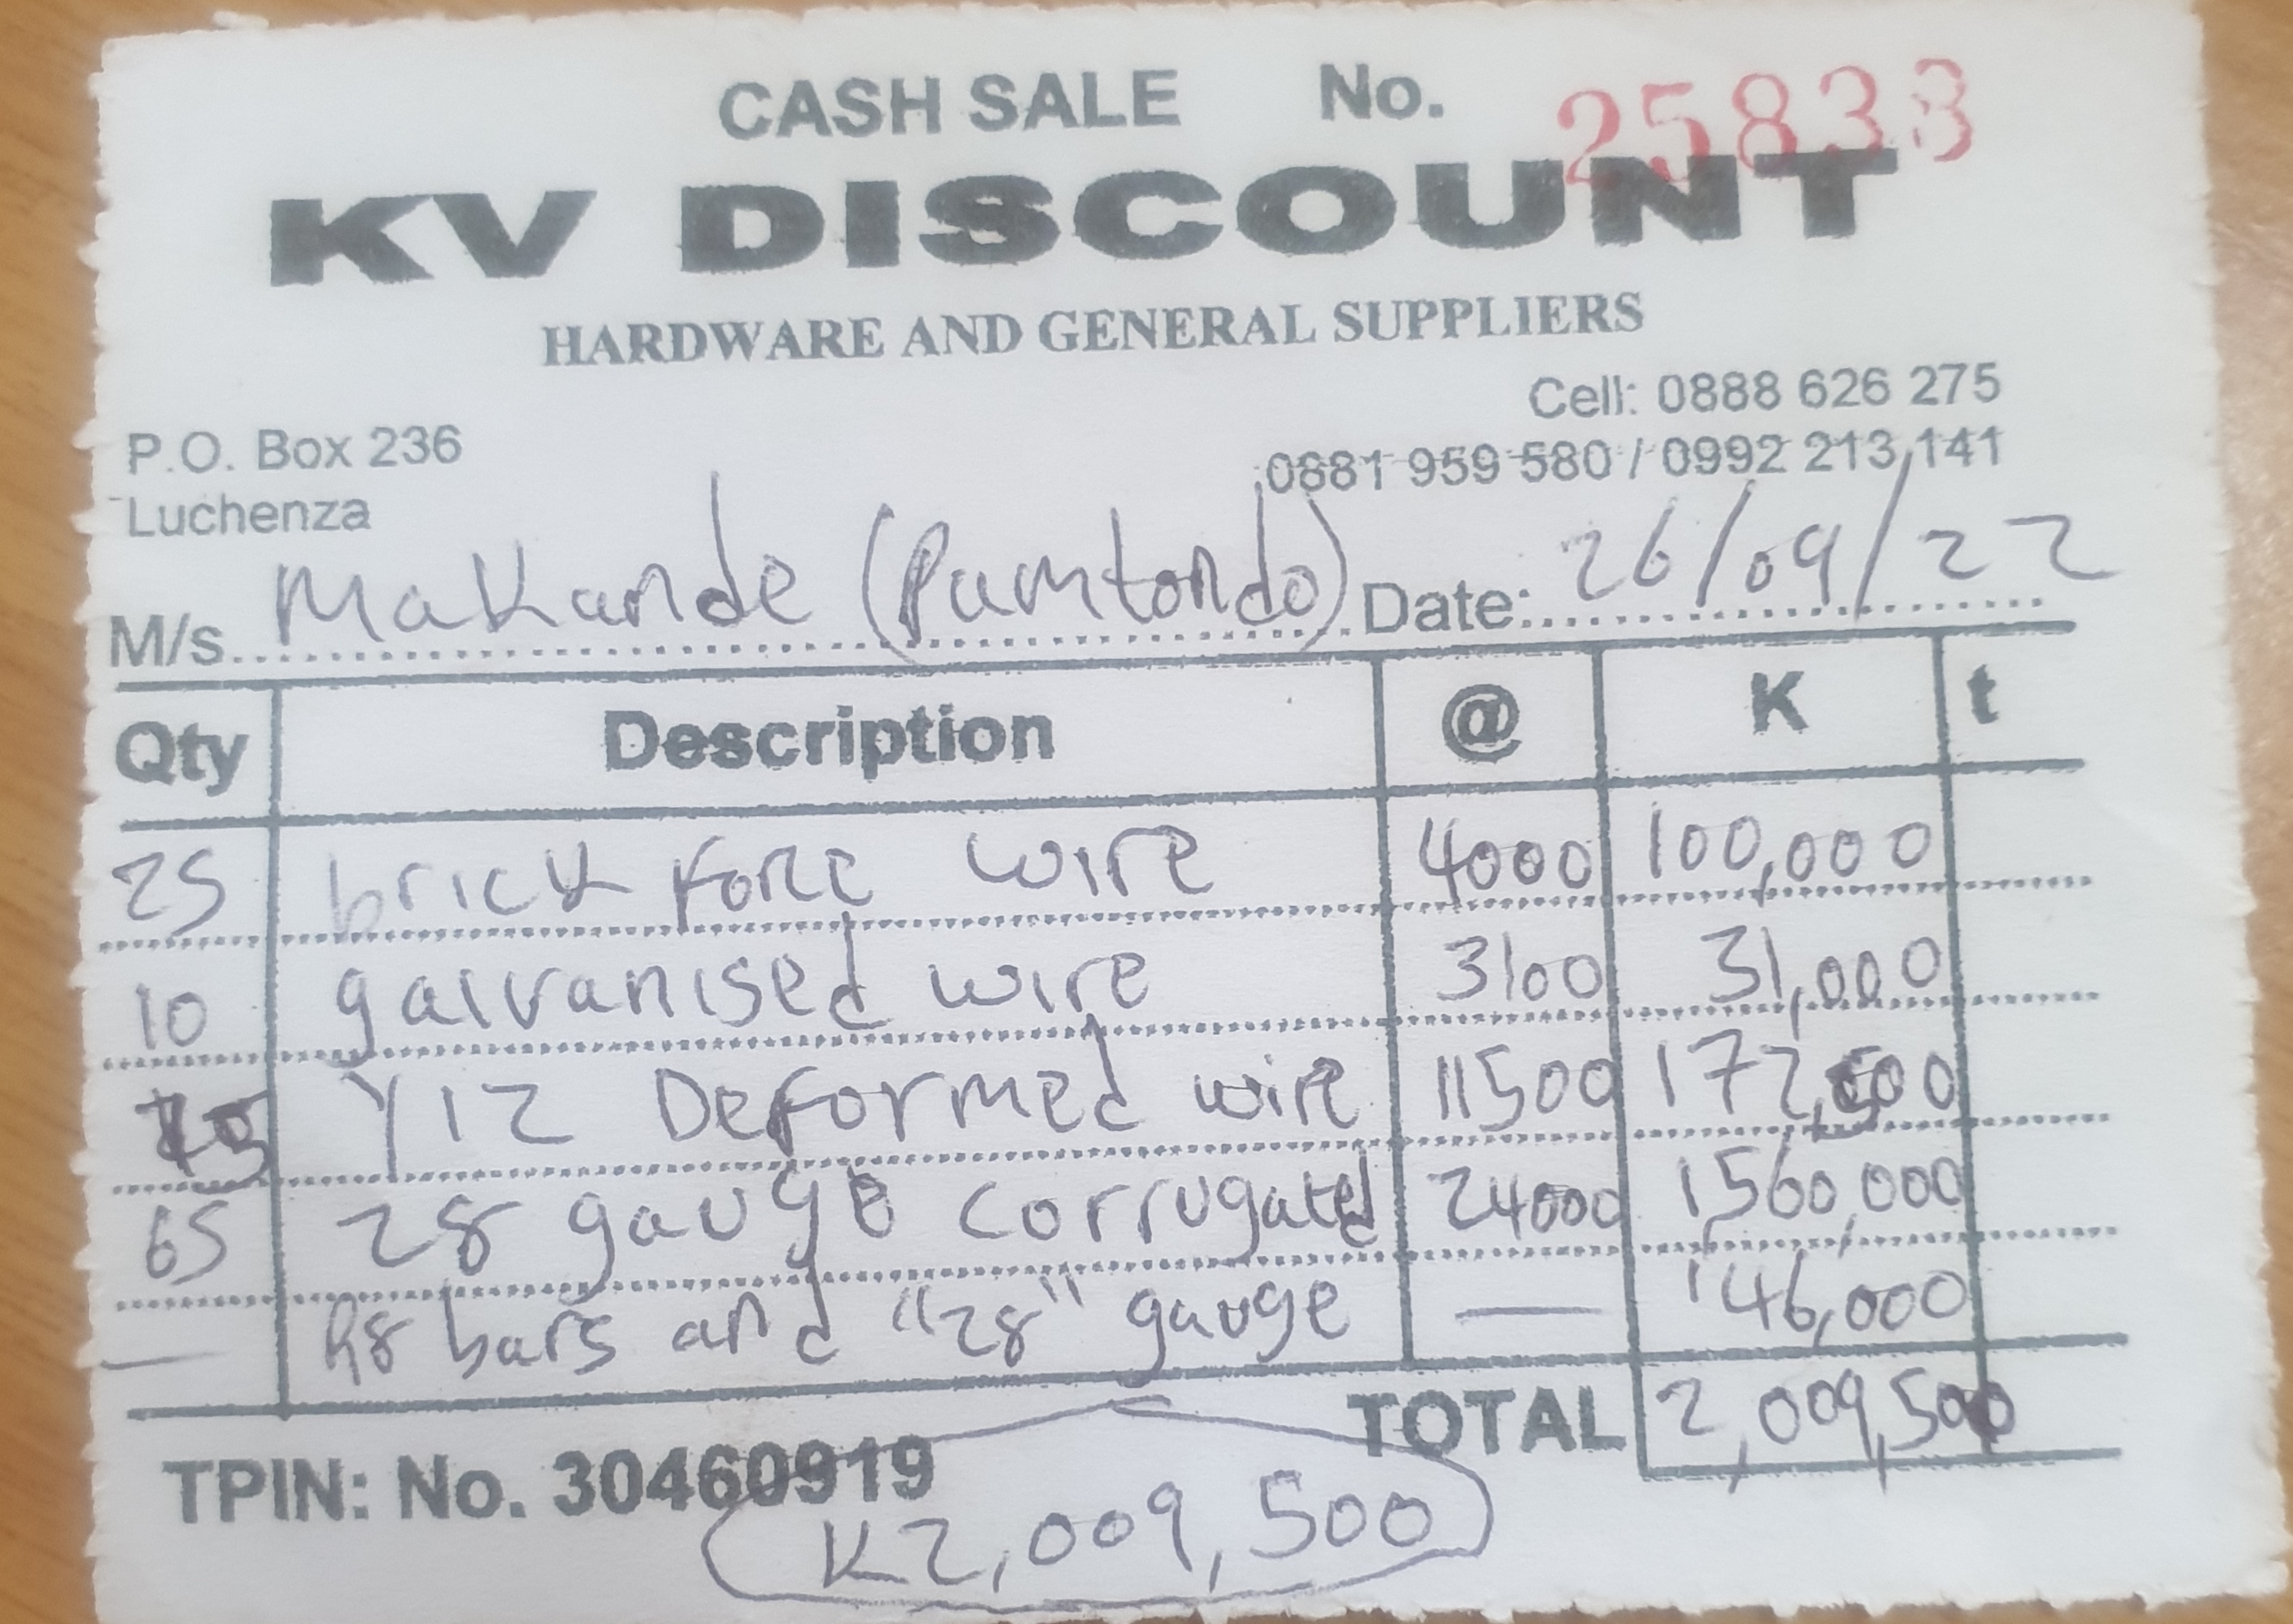 CASH SALE No. 25833
KV DISCOUNT
HARDWARE AND GENERAL SUPPLIERS
Cell: 0888 626 275
P.O. Box 236 0881 959 580 / 0992 213 141
Luchenza
M/s. Makande (Pamtondo) Date: 26/09/22
Qty Description @ K t
25 brick force wire 4000 100,000
10 galvanised wire 3100 31,000
15 Y12 Deformed wire 11500 172,500
65 28 gauge corrugated 24000 1560,000
— R8 bars and "28" gauge — 146,000
TOTAL 2,009,500
TPIN: No. 30460919
K2,009,500